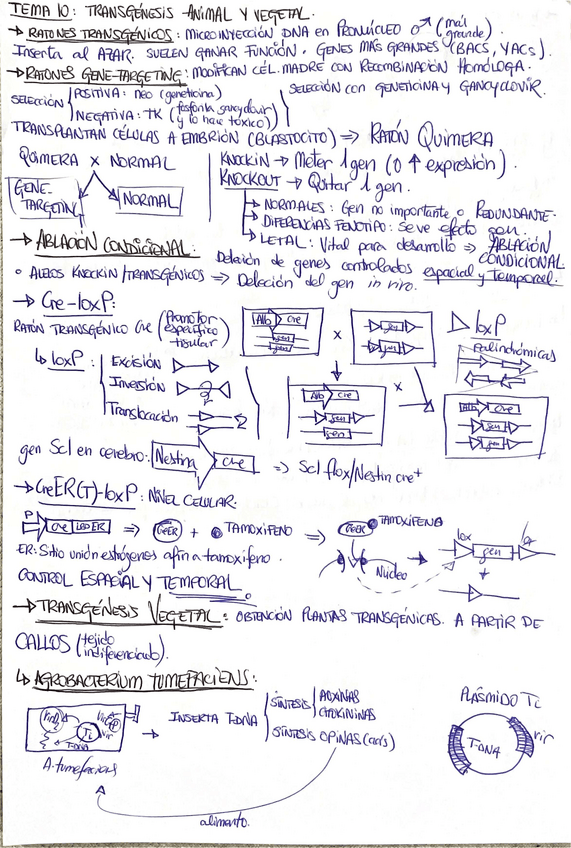 TEMA 10: TRANSGÉNESIS ANIMAL Y VEGETAL.
→ RATONES TRANSGÉNICOS: MICROINYECCIÓN DNA en PRONÚCLEO ♂ (más grande)
Inserta al AZAR. SUELEN GANAR FUNCIÓN. GENES MÁS GRANDES (BACS, YACs).
→ RATONES GENE-TARGETING: MODIFICAN CÉL. MADRE CON RECOMBINACIÓN HOMÓLOGA.
SELECCIÓN
POSITIVA: neo (geneticina)
NEGATIVA: TK (fosforila ganciclovir y lo hace tóxico)
SELECCIÓN CON GENETICINA Y GANCYCLOVIR.
TRANSPLANTAN CÉLULAS A EMBRIÓN (BLASTOCITO) ⇒ RATÓN QUIMERA
QUIMERA x NORMAL
GENE-TARGETING
NORMAL
KNOCKIN → Meter 1 gen (o ↑ expresión).
KNOCKOUT → Quitar 1 gen.
→ NORMALES: Gen no importante o REDUNDANTE.
→ DIFERENCIAS FENOTIPO: Se ve efecto gen.
→ LETAL: Vital para desarrollo ⇒ ABLACIÓN CONDICIONAL
→ ABLACIÓN CONDICIONAL:
Delección de genes controlados espacial y temporal.
o ALELOS KNOCKIN/TRANSGÉNICOS ⇒ Delección del gen in vivo.
→ Cre-loxP:
RATÓN TRANSGÉNICO Cre (Promotor específico tisular)
Alb Cre
gen
gen
x
gen
gen
▷ loxP
palindrómicas
↳ loxP:
Excisión
Inversión
Translocación
Alb cre
gen
gen
x
Alb Cre
gen
gen
gen Scl en cerebro:
Nestina cre
⇒ Scl flox/Nestin cre+
→ CreER(T)-loxP: NIVEL CELULAR.
P
Cre LBD ER
⇒ CreER + TAMOXIFENO ⇒
CreER TAMOXIFENO
Núcleo
lox gen lox
+
ER: Sitio unión estrógenos afín a tamoxifeno.
CONTROL ESPACIAL Y TEMPORAL.
→ TRANSGÉNESIS VEGETAL: OBTENCIÓN PLANTAS TRANSGÉNICAS. A PARTIR DE
CALLOS (tejido indiferenciado).
↳ AGROBACTERIUM TUMEFACIENS:
Ti
vir
T-DNA
A. tumefaciens
→ INSERTA T-DNA
SÍNTESIS
AUXINAS
CITOKININAS
SÍNTESIS OPINAS (aa's)
alimento.
PLÁSMIDO Ti
T-DNA
vir